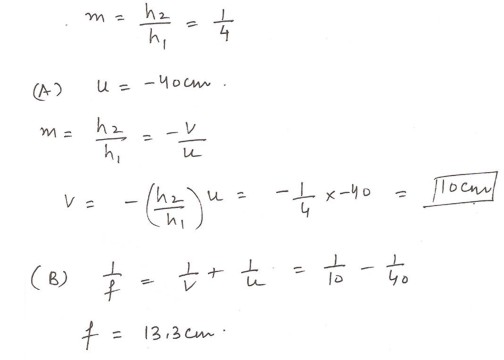 . m = h2/h1 = 1/4
(A) u = -40cm.
m = h2/h1 = -v/u
v = -(h2/h1) u = -1/4 x -40 = 10cm
(B) 1/f = 1/v + 1/u = 1/10 - 1/40
f = 13.3cm.